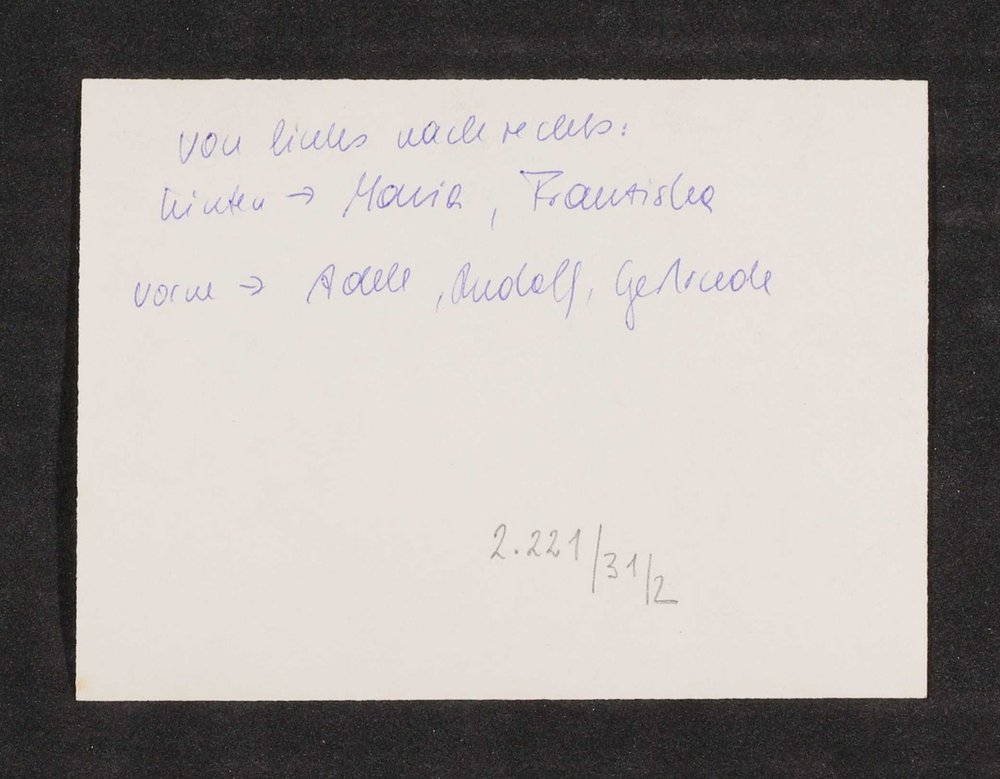 von links nach rechts:
hinten → Maria, Frantiska
vorne → Adele, Rudolf, Gertrude
2.221/31/2